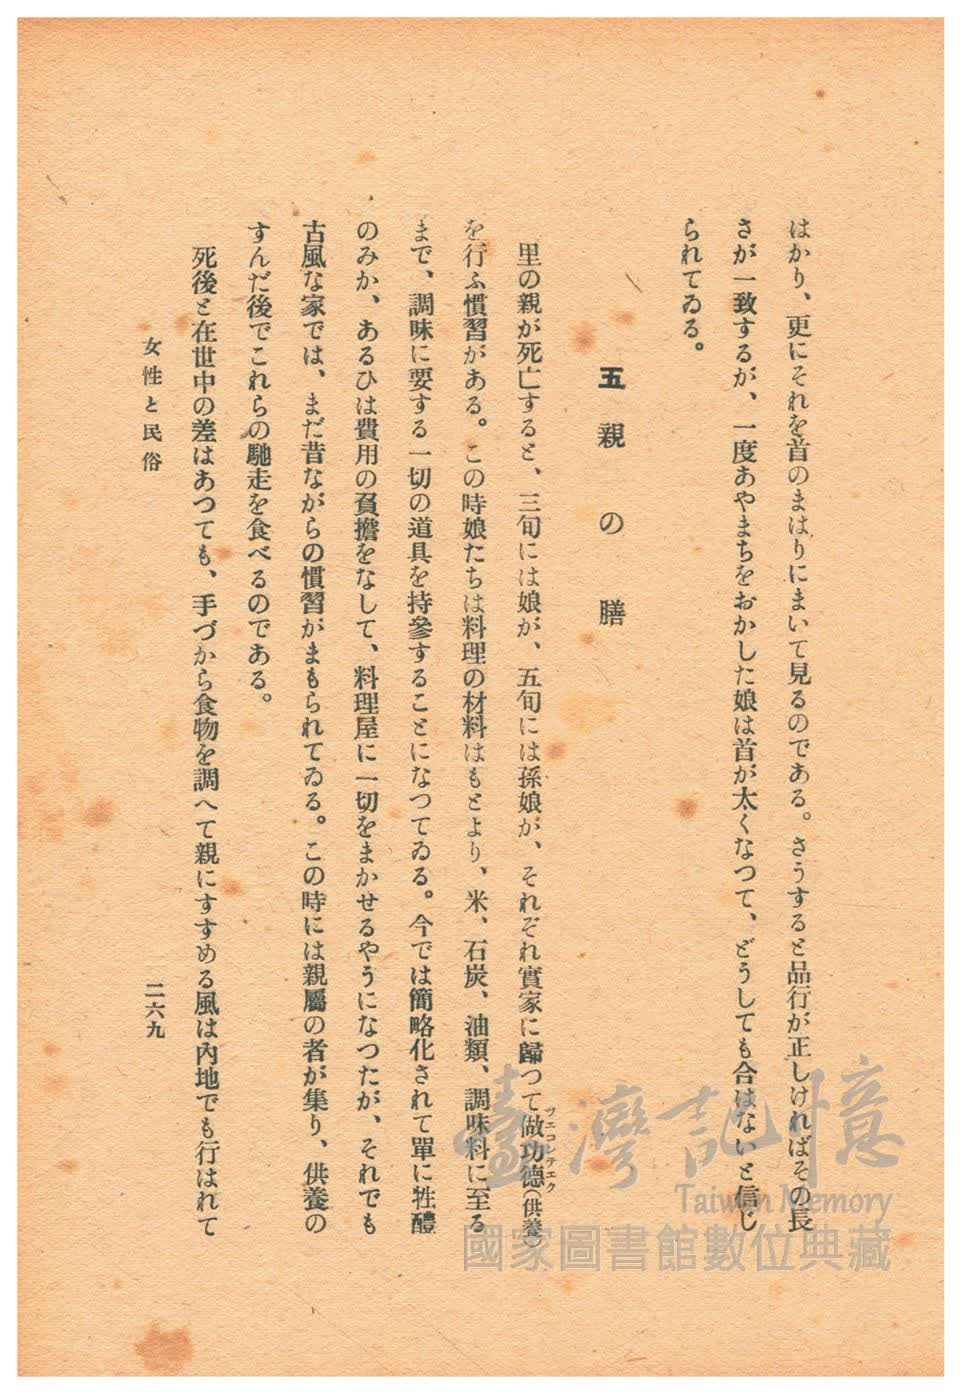 はかり、更にそれを首のまはりにまいて見るのである。さうすると品行が正しければその長
さが一致するが、一度あやまちをおかした娘は首が太くなつて、どうしても合はないと信じ
られてゐる。
五 親の膳
里の親が死亡すると、三旬には娘が、五旬には孫娘が、それぞれ實家に歸つて做功德(供養)
ツエコンテエク
を行ふ慣習がある。この時娘たちは料理の材料はもとより、米、石炭、油類、調味料に至る
まで、調味に要する一切の道具を持參することになつてゐる。今では簡略化されて單に牲醴
のみか、あるひは費用の負擔をなして、料理屋に一切をまかせるやうになつたが、それでも
古風な家では、まだ昔ながらの慣習がまもられてゐる。この時には親屬の者が集り、供養の
すんだ後でこれらの馳走を食べるのである。
死後と在世中の差はあつても、手づから食物を調へて親にすすめる風は內地でも行はれて
女性と民俗
二六九
臺灣記憶
Taiwan Memory
國家圖書館數位典藏